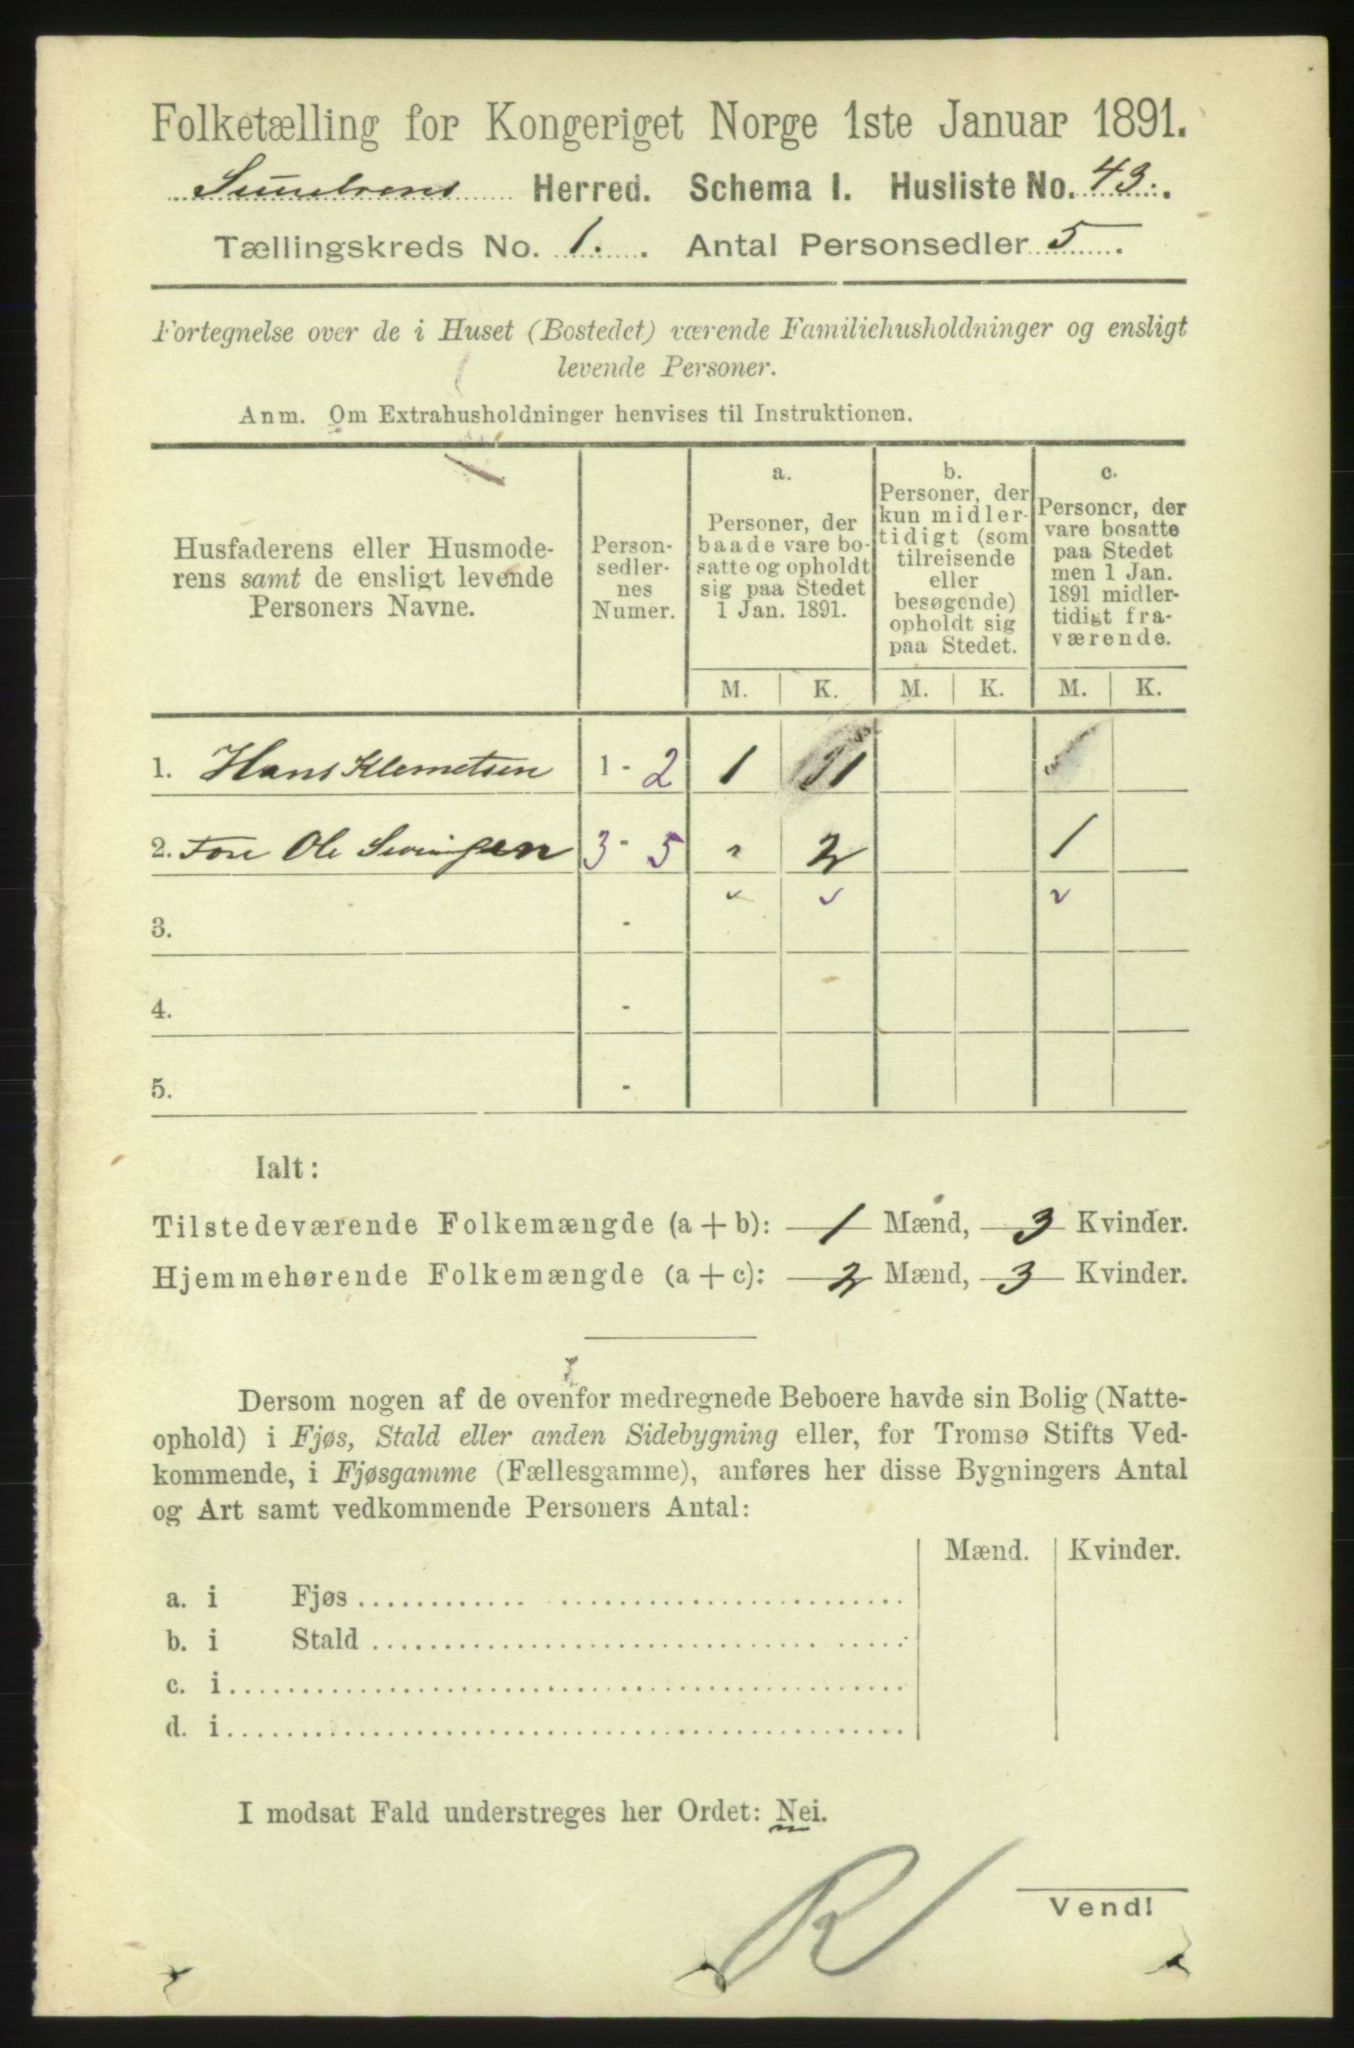 Folketælling for Kongeriget Norge 1ste Januar 1891.
Herred. Schema I. Husliste No. 43.
Tællingskreds No. 1. Antal Personsedler 5.
Fortegnelse over de i Huset (Bostedet) værende Familiehusholdninger og ensligt
levende Personer.
Anm. Om Extrahusholdninger henvises til Instruktionen.
Husfaderens eller Husmode-
rens samt de ensligt levende
Personers Navne.
Person-
sedler-
nes
Numer.
a.
Personer, der
baade vare bo-
satte og opholdt
sig paa Stedet
1 Jan. 1891.
b.
Personer, der
kun midler-
tidigt (som
tilreisende
eller
besøgende)
opholdt sig
paa Stedet.
c.
Personer, der
vare bosatte
paa Stedet
men 1 Jan.
1891 midler-
tidigt fra-
værende.
M. K. M. K. M. K.
1. Hans Klemetsen 1 - 2 1 1
2. Ole 3 - 5 " 2 1
3. -
4. -
5. -
Ialt:
Tilstedeværende Folkemængde (a + b): 1 Mænd, 3 Kvinder.
Hjemmehørende Folkemængde (a + c): 2 Mænd, 3 Kvinder.
Dersom nogen af de ovenfor medregnede Beboere havde sin Bolig (Natte-
ophold) i Fjøs, Stald eller anden Sidebygning eller, for Tromsø Stifts Ved-
kommende, i Fjøsgamme (Fællesgamme), anføres her disse Bygningers Antal
og Art samt vedkommende Personers Antal:
Mænd. Kvinder.
a. i Fjøs
b. i Stald
c. i
d. i
I modsat Fald understreges her Ordet: Nei.
R
Vend!